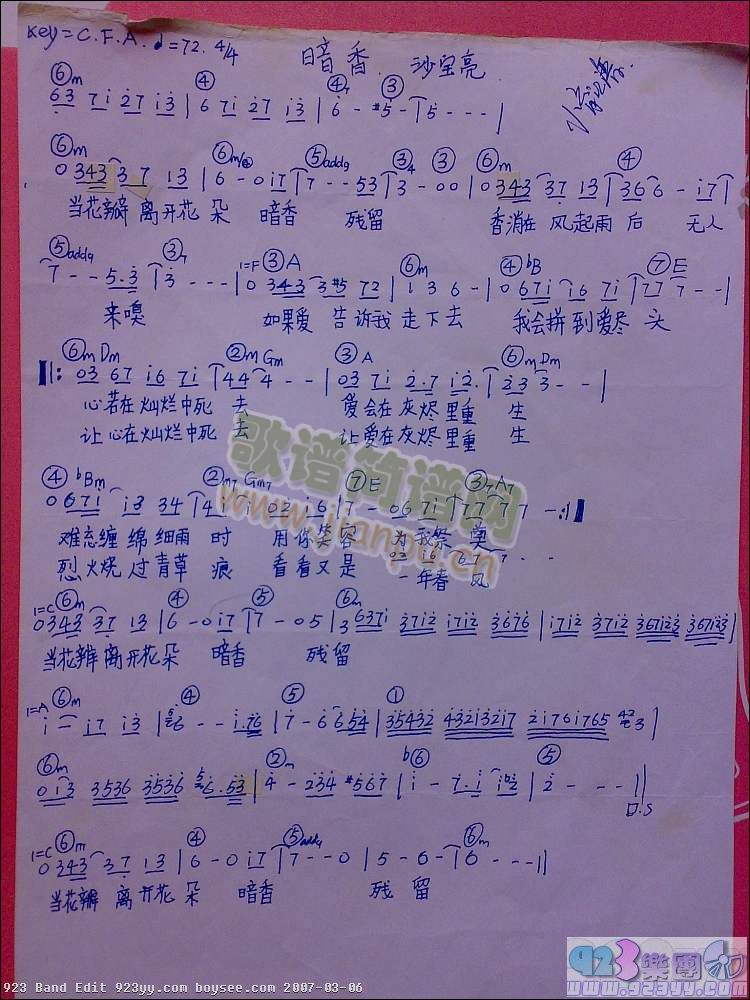 Key=C.F.A. ♩=72. 4/4
暗香 沙宝亮
⑥m ④ ④7 ③
63 7i 27 i3 | 6 7i 27 i3 | 6 - #5 - | 5 - - - |
⑥m ⑥m/④ ⑤add9 ③4 ③ ⑥m ④
0 343 3 7 13 | 6 - 0 i7 | 7 - - 53 | 3 - 00 | 0 343 37 13 | 36 6 - i7 |
当花瓣 离开花 朵 暗香 残留 香消在 风起雨 后 无人
⑤add9 ③7 1=F ③A ⑥m ④bB ⑦E
7 - - 5.3 | 3 - - - | 0 343 3#5 72 | 1 3 6 - | 0 67i i6 7i | 77 7 - - |
来嗅 如果爱 告诉我 走下去 我会拼到爱尽 头
⑥mDm ②mGm ③A ⑥mDm
‖: 03 67 i6 7i | 44 4 - - | 03 7i 2.7 i2. | 23 3 - - |
心若在灿烂中死 去 爱会在灰烬里重 生
让心在灿烂中死 去 让爱在灰烬里重 生
④bBm ②m7 Gm7 ⑦E ③7A7
0 67i i3 34 | 4i i 02 i6 | 7 - 06 7i | 77 7 7 - :‖
难忘缠 绵 细雨 时 用你笑容 为我祭 奠
02 i6 67 7 - -
烈火烧 过青草 痕 看看又是 一年春 风
1=C ⑥m ④ ⑤ ⑥m
0343 37 13 | 6 - 0i7 | 7 - 05 | 3 637i 37i2 i7i2 3676 | i7i2 37i2 367i23 367i23 |
当花瓣 离开花 朵 暗香 残留
1=A ⑥m ④ ⑤ ①
i - i7 i3 | 6 - - i.76 | 7 - 6 654 | 35432 432i32i7 2i76i765 423 |
⑥m ②m b⑥ ⑤
0i3 3536 3536 6.53 | 4 - 234 #567 | i - 7.i ib2 | 2 - - - ‖
D.S
1=C ⑥m ④ ⑤add9 ⑥m
0 343 37 13 | 6 - 0 i7 | 7 - - 0 | 5 - 6 - | 6 - - - ‖
当花瓣 离开花 朵 暗香 残 留
歌谱简谱网
www.jianpu.cn
923樂團
www.923yy.com
923 Band Edit 923yy.com boysee.com 2007-03-06